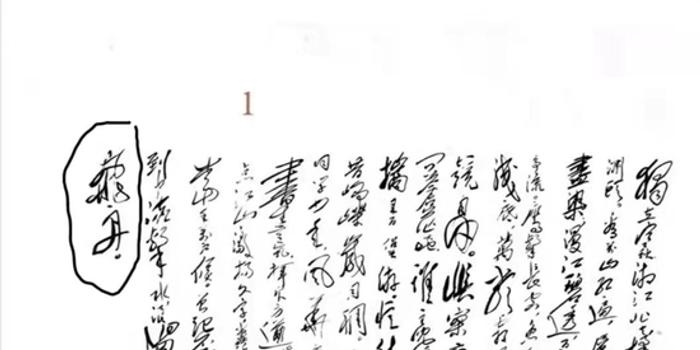 1
獨立寒秋湘江北去
洲頭看万山紅遍層
盡染漫江碧透
爭流鷹擊長空魚
淺底萬類
競自由悵寥
問蒼茫大地誰主
攜來百侶曾游憶往
昔崢嶸歲月稠
同學少年風華
書生意氣揮斥方遒
點江山激揚文字糞
當年萬戶侯曾記否
到中流擊水浪遏
飛舟。